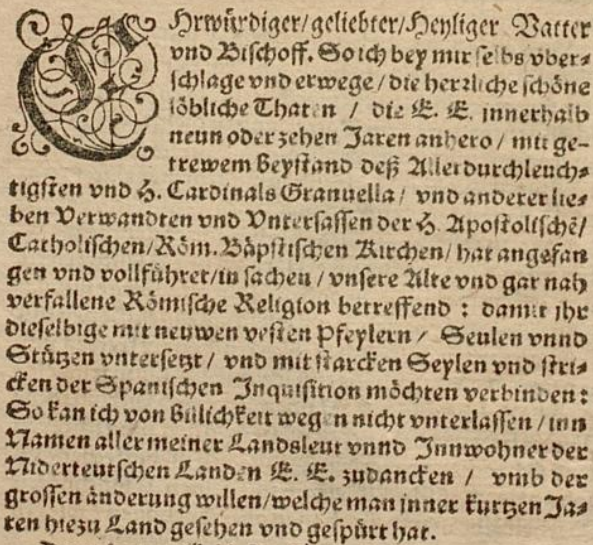 EHrwürdiger/geliebter/Heyliger Vatter
vnd Bischoff. So ich bey mir selbs vber-
schlage vnd erwege/die herzliche schöne
löbliche Thaten / die E. E. innerhalb
neun oder zehen Jaren anhero/ mit ge-
trewem Beystand deß Allerdurchleuch-
tigsten vnd H. Cardinals Granuella/ vnd anderer lie-
ben Verwandten vnd Vntersassen der H. Apostolischē/
Catholischen/Röm. Bäpstischen Kirchen/ hat angefan
gen vnd vollführet/in sachen/vnsere Alte vnd gar nah
verfallene Römische Religion betreffend : damit jhr
dieselbige mit neuwen vesten Pfeylern / Seulen vnnd
Stützen vntersetzt/ vnd mit starcken Seylen vnd stri-
cken der Spanischen Inquisition möchten verbinden:
So kan ich von Billichkeit wegen nicht vnterlassen/inn
Namen aller meiner Landsleut vnnd Innwohner der
Niderteutschen Landen E. E. zudancken / vmb der
grossen änderung willen/welche man inner kurtzen Ja-
ren hiezu Land gesehen vnd gespürt hat.